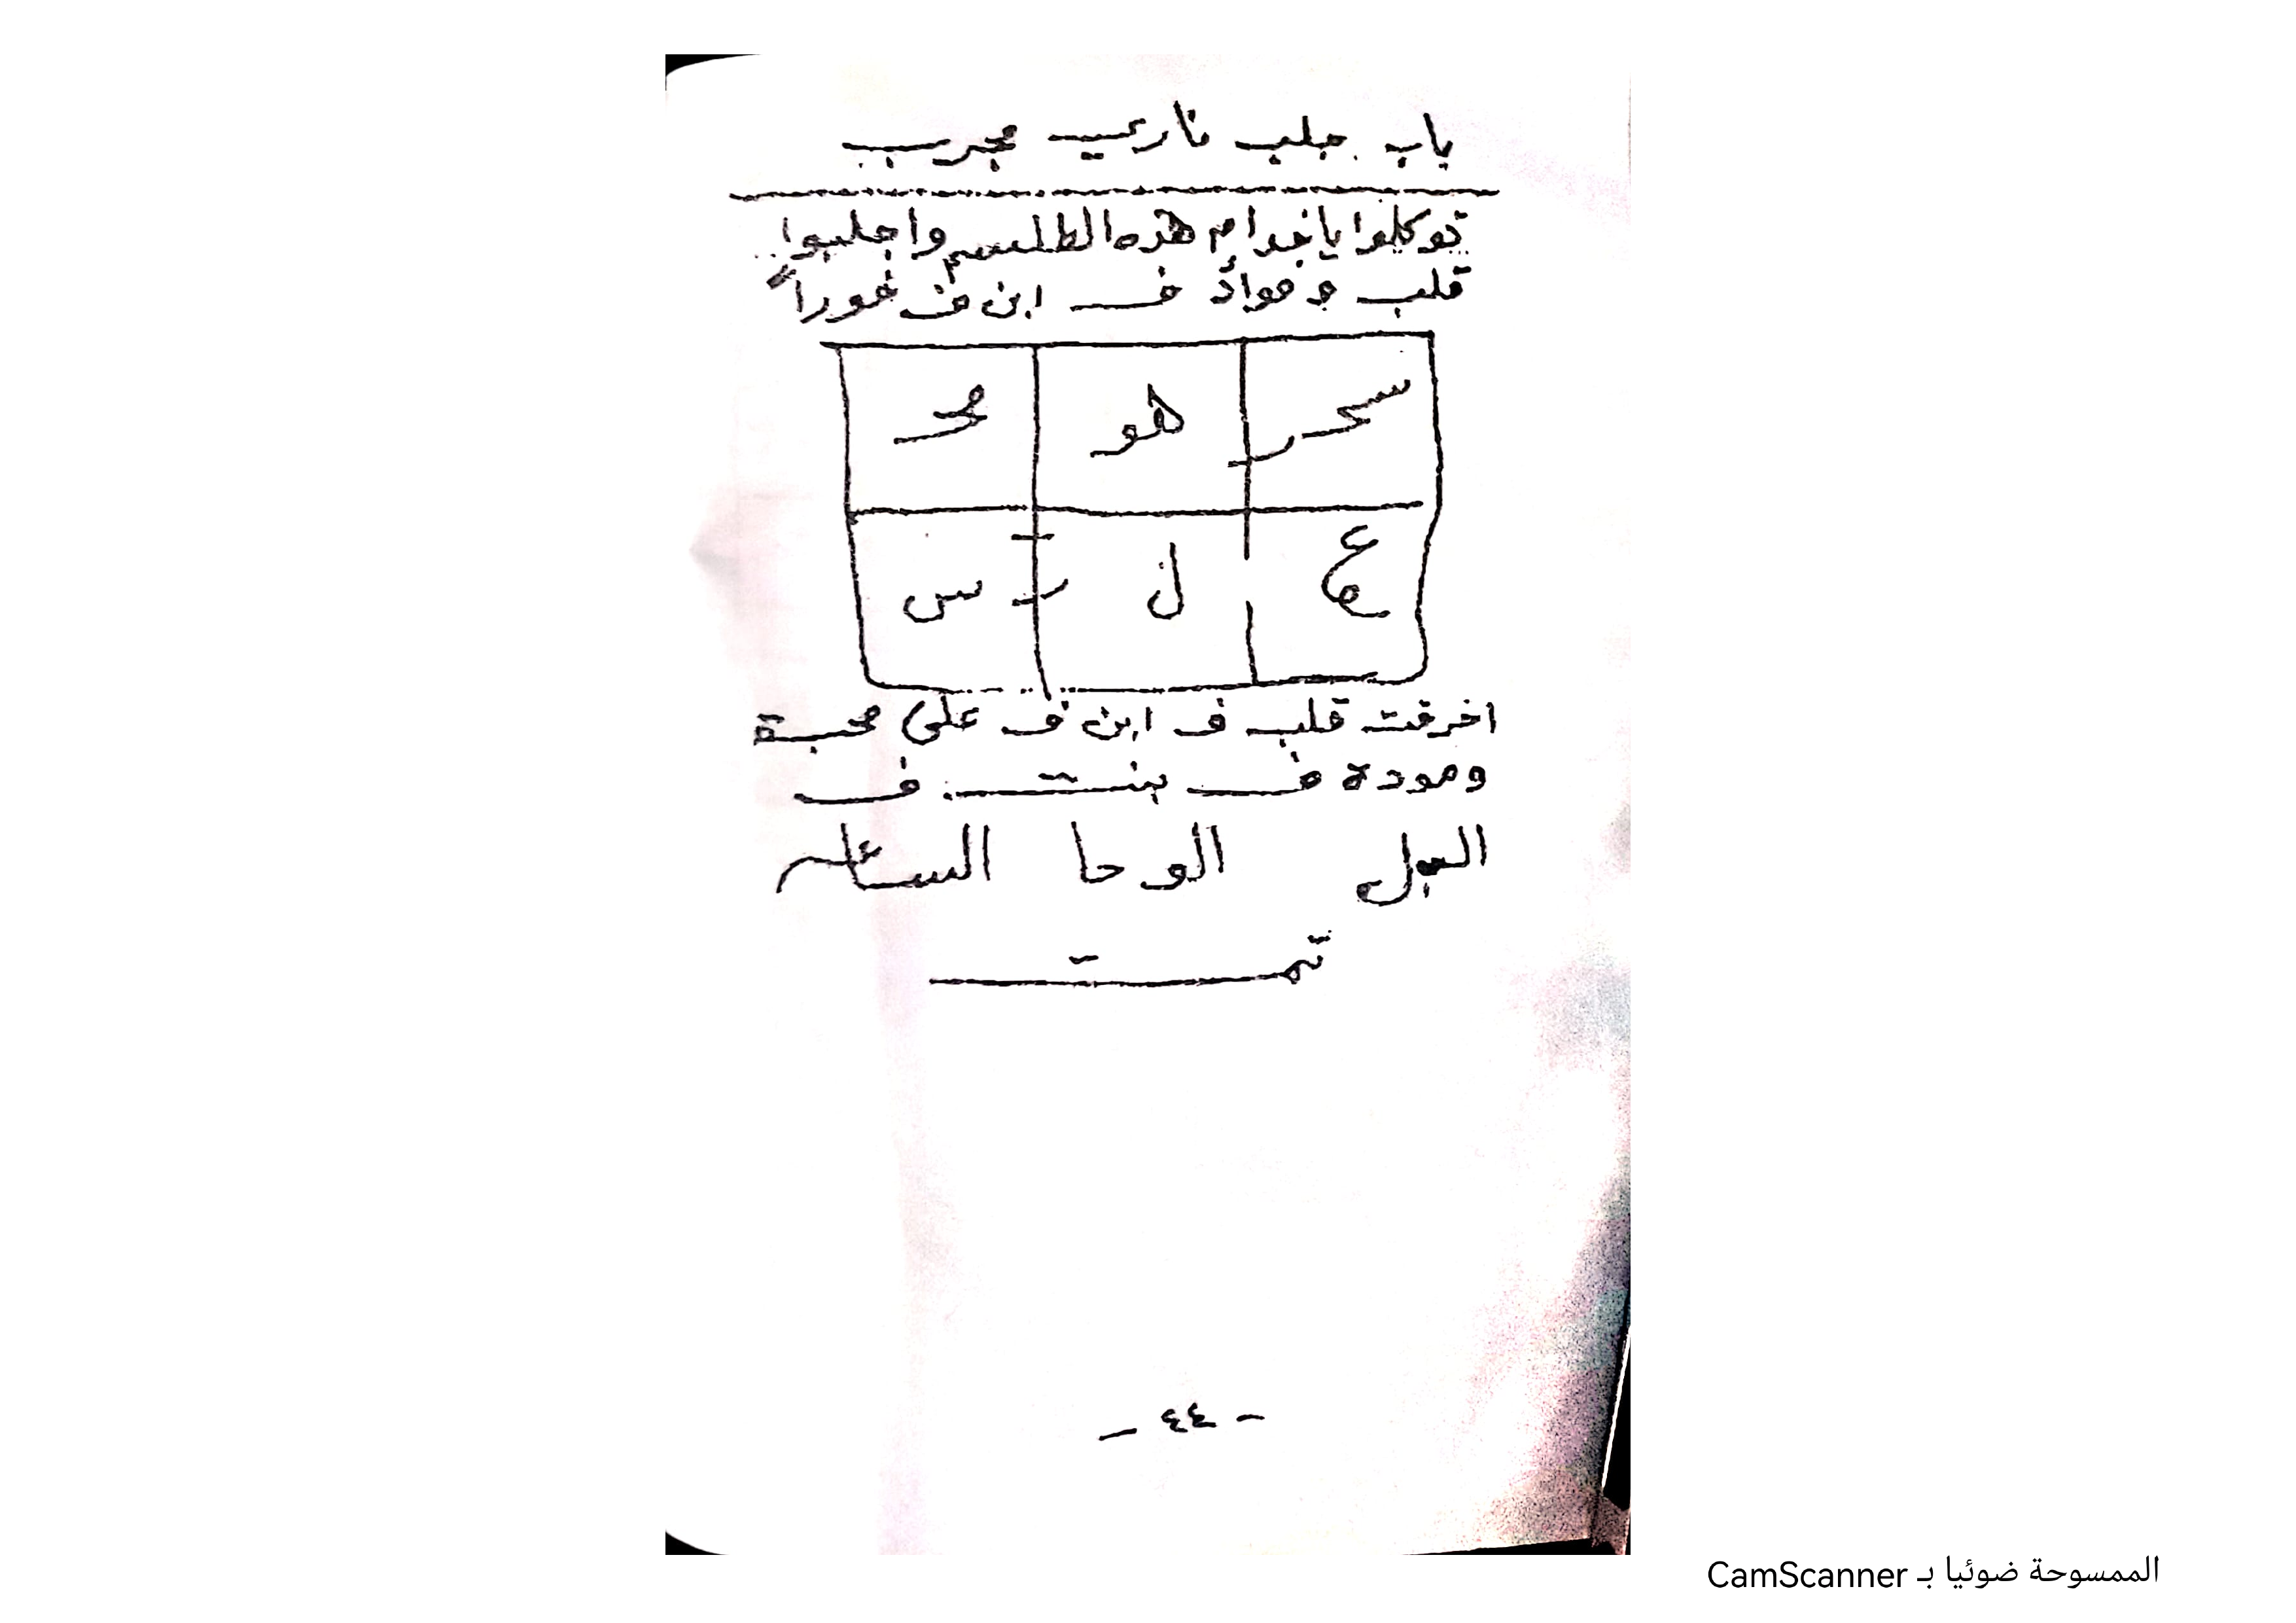 باب جلب ناري مجرب
توكلوا ياخدام هذه الطلسم واجلبوا
قلب وفوأد ف ابن ف فوراً
سحر هو
ل س
احرقت قلب ف ابن ف على محبة
ومودة ف بنت ف
العجل الوحا الساعة
تمت
- ٤٤ -
الممسوحة ضوئيا بـ CamScanner